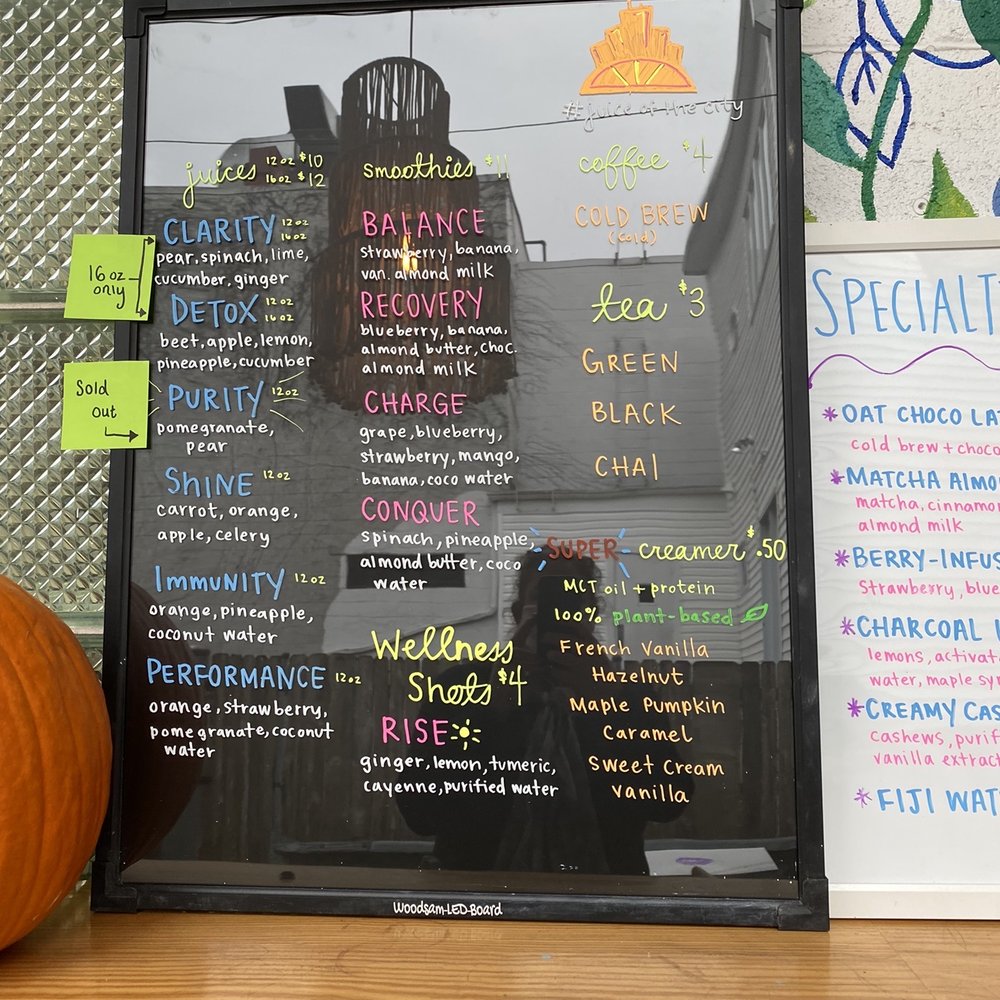 #juice of the city
juices 12 oz $10
16 oz $12
CLARITY 12 oz
16 oz
pear, spinach, lime,
cucumber, ginger
16 oz
only
DETOX 12 oz
16 oz
beet, apple, lemon,
pineapple, cucumber
Sold
out
PURITY 12 oz
pomegranate,
pear
SHINE 12 oz
carrot, orange,
apple, celery
IMMUNITY 12 oz
orange, pineapple,
coconut water
PERFORMANCE 12 oz
orange, strawberry,
pomegranate, coconut
water
smoothies $11
BALANCE
strawberry, banana,
van. almond milk
RECOVERY
blueberry, banana,
almond butter, choc.
almond milk
CHARGE
grape, blueberry,
strawberry, mango,
banana, coco water
CONQUER
spinach, pineapple,
almond butter, coco
water
Wellness
Shots $4
RISE
ginger, lemon, tumeric,
cayenne, purified water
coffee $4
COLD BREW
(cold)
tea $3
GREEN
BLACK
CHAI
SUPER creamer $.50
MCT oil + protein
100% plant-based
French Vanilla
Hazelnut
Maple Pumpkin
Caramel
Sweet Cream
vanilla
Woodsam-LED-Board
SPECIALT
*OAT CHOCO LA
cold brew + choco
*MATCHA ALMO
matcha, cinnamo
almond milk
*BERRY-INFUS
Strawberry, blue
*CHARCOAL
lemons, activat
water, maple sy
*CREAMY CAS
cashews, purif
vanilla extract
*FIJI WAT